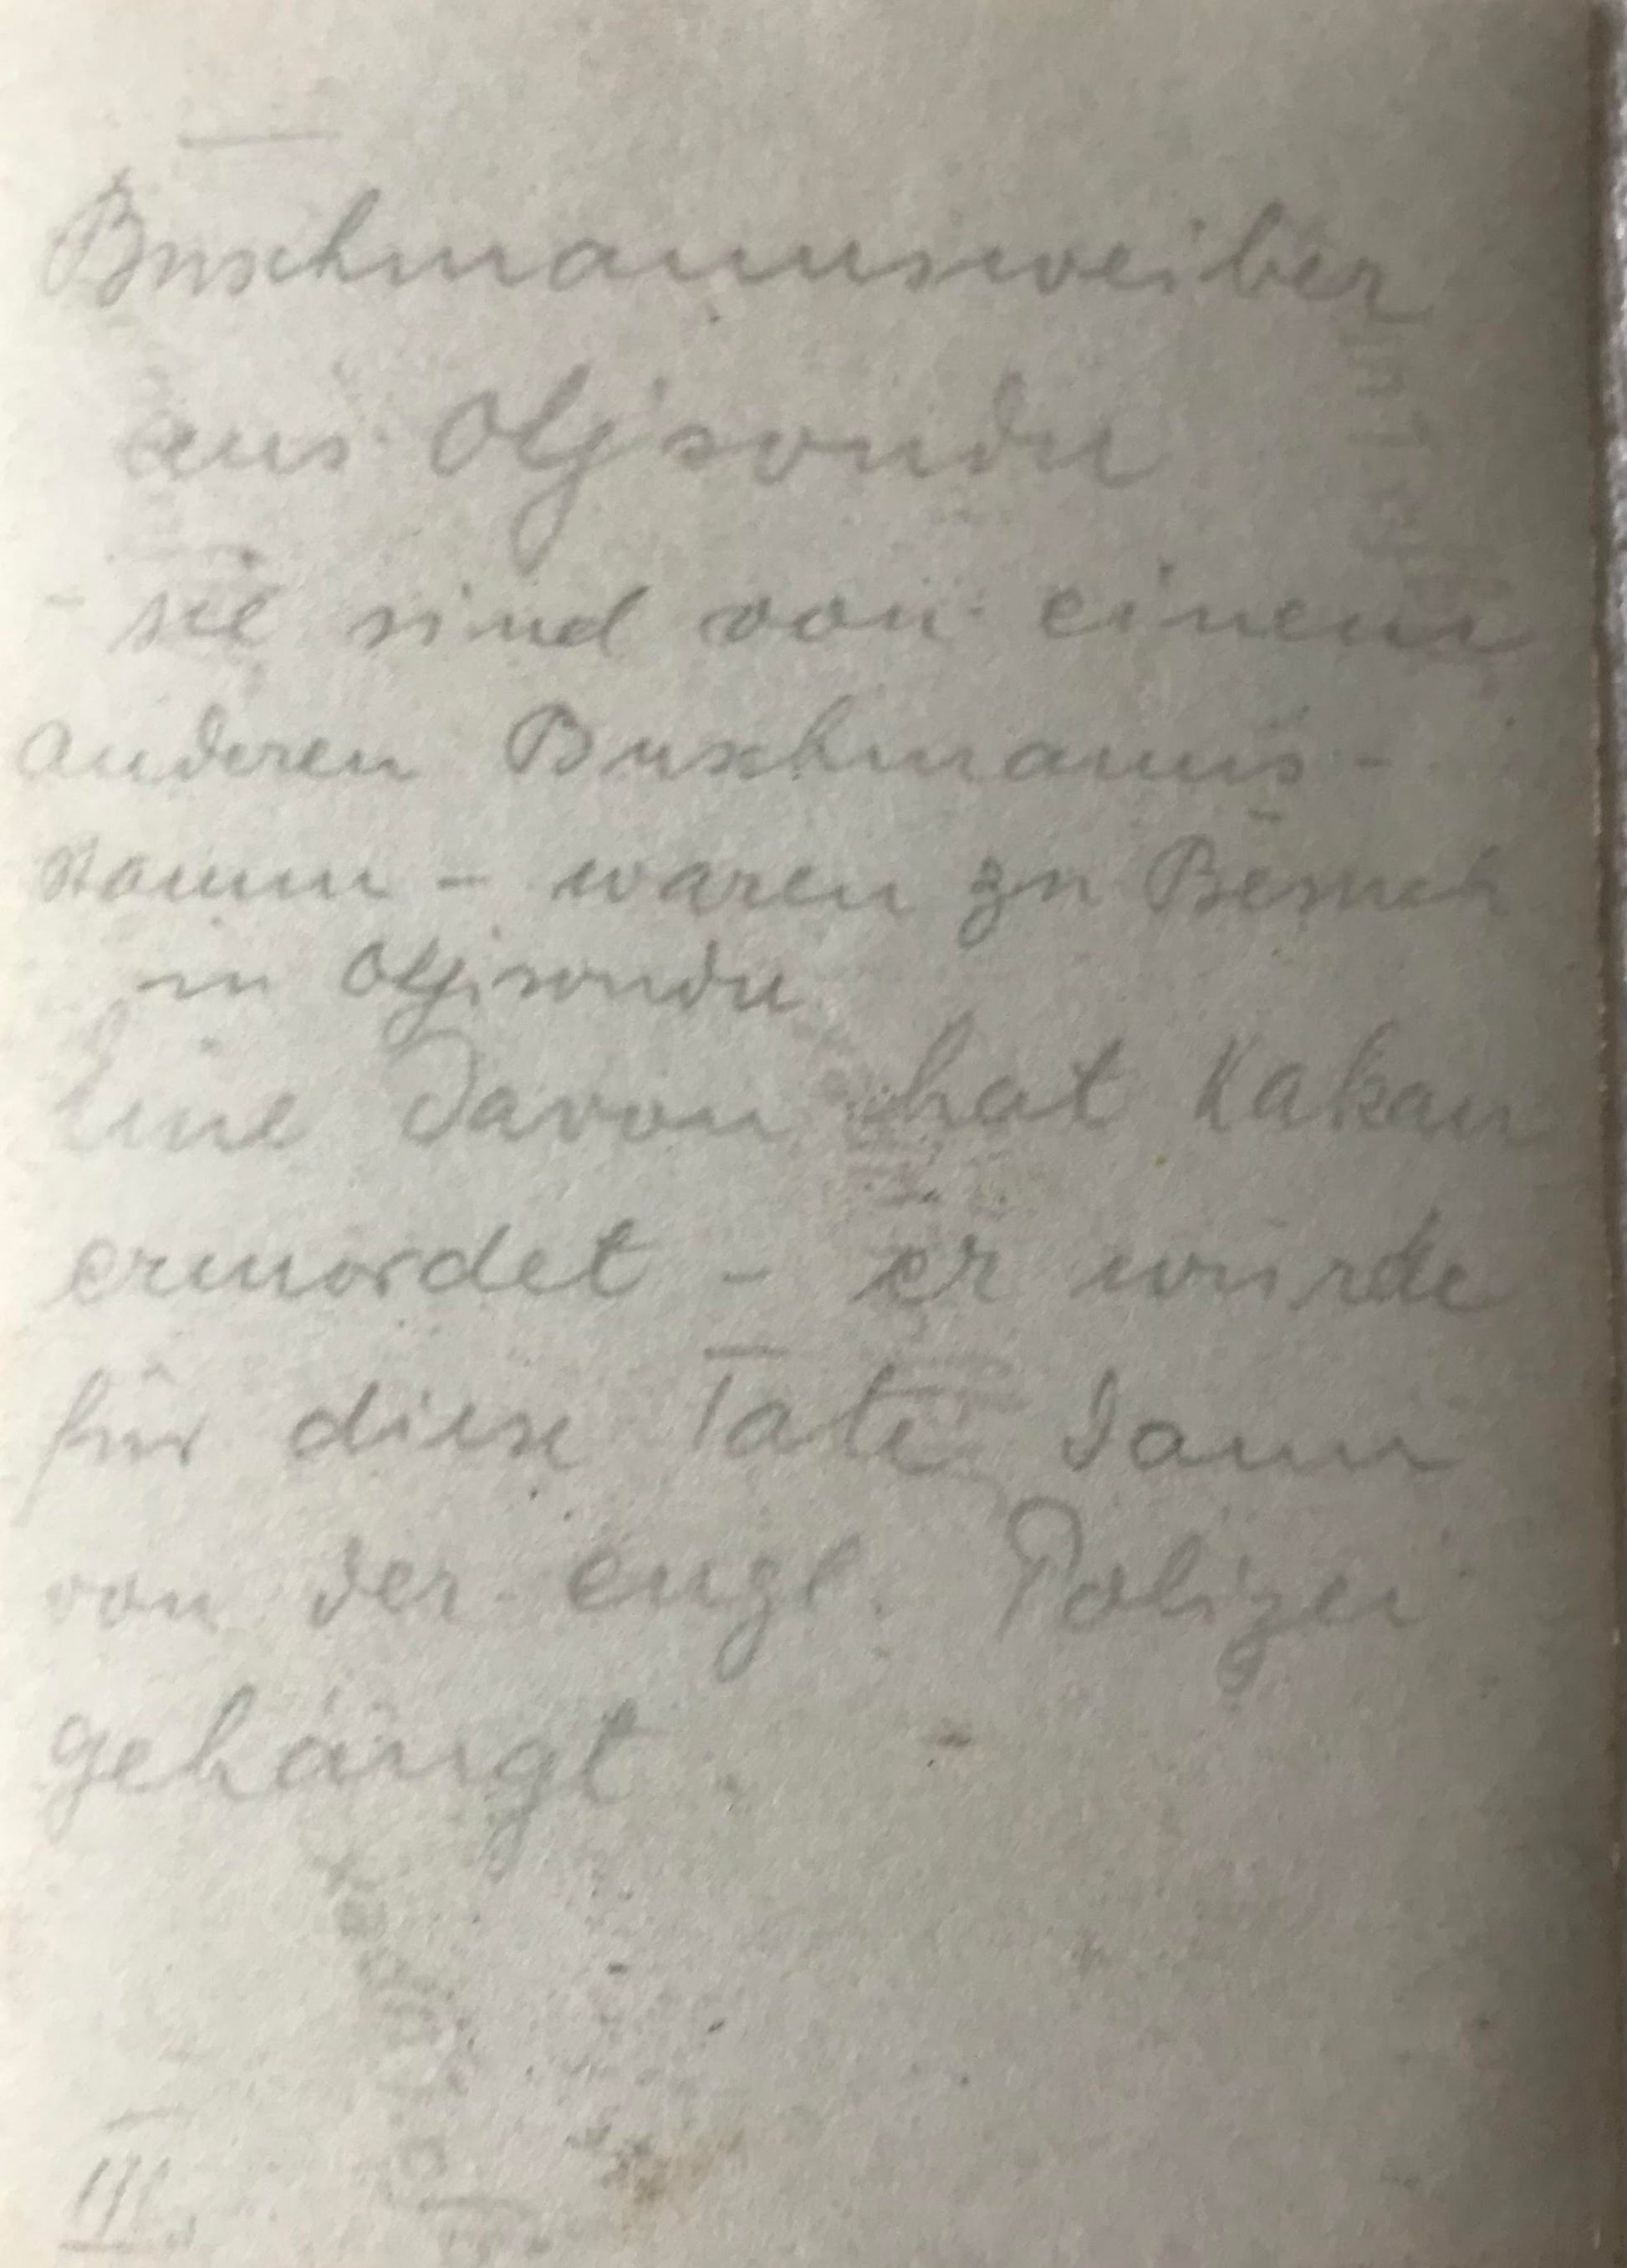 Buschmannsweiber
aus Otjisondu
- sie sind von einem
anderen Buschmanns-
stamm - waren zu Besuch
in Otjisondu
Eine davon hat Kakan
ermordet - er wurde
für diese Tate dann
von der engl. Polizei
gehängt.
III.